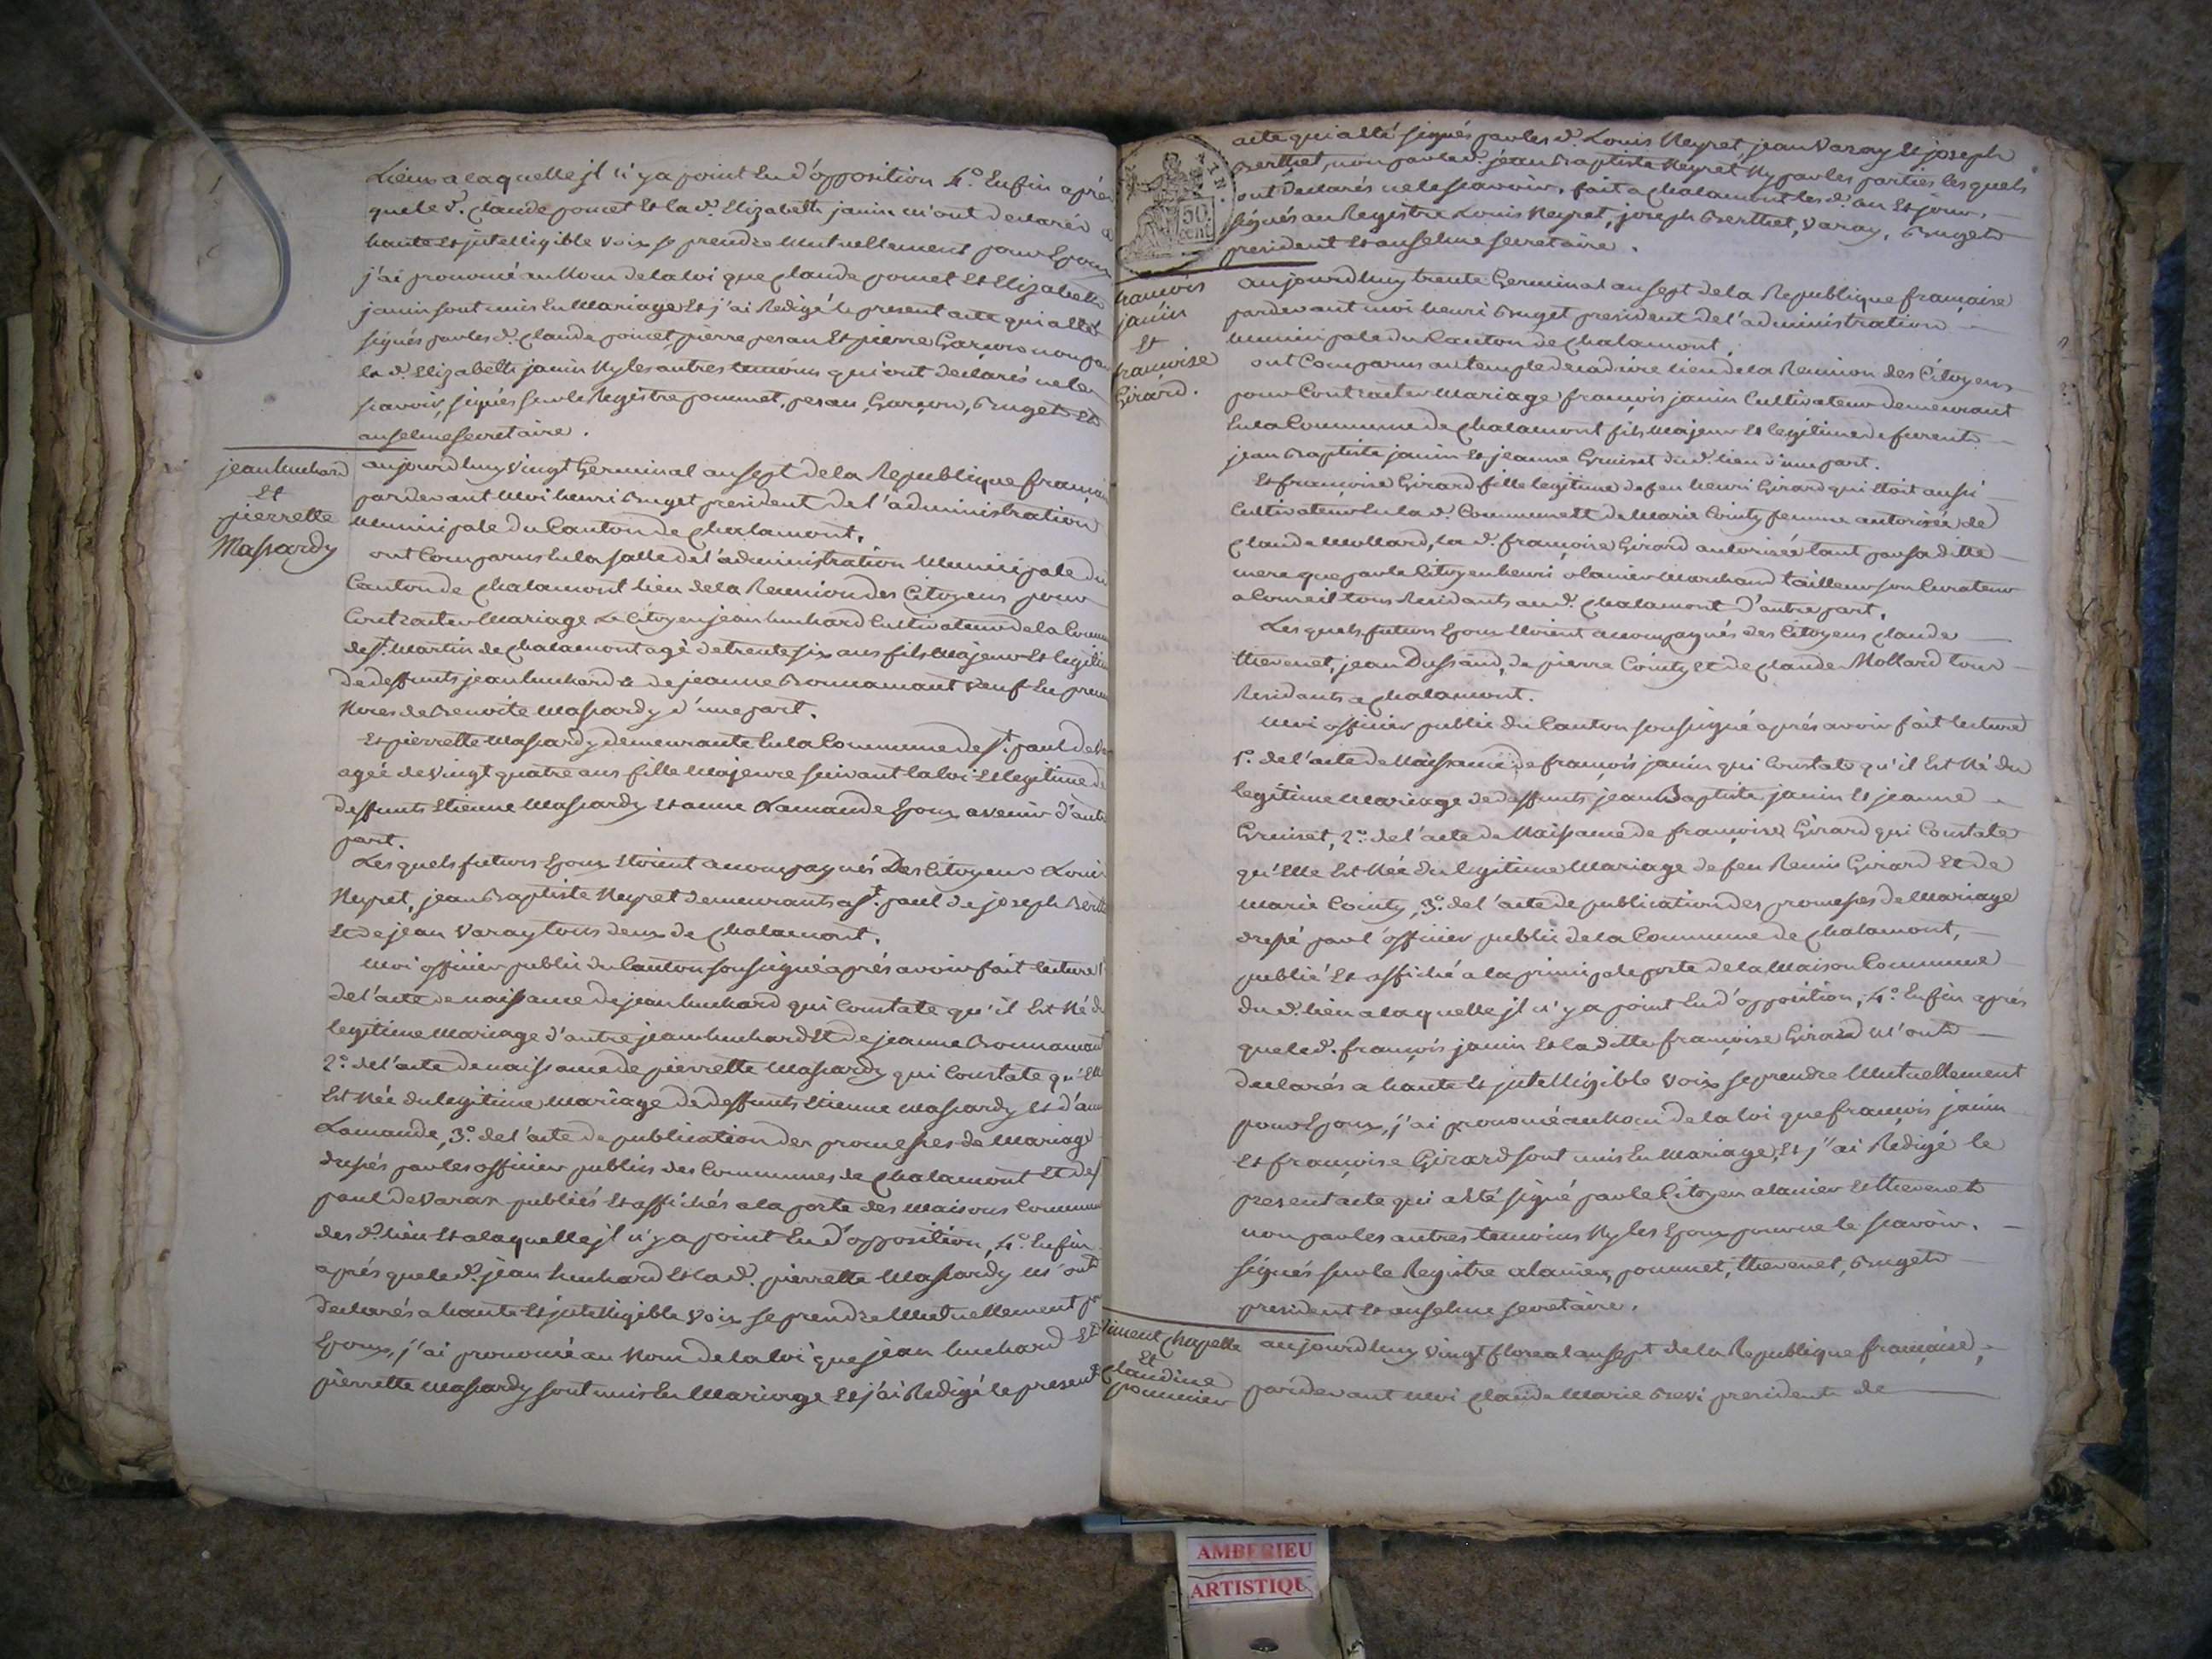 Lieux a laquelle jl n'y a point Eu d'opposition 4.° Enfin aprés
que le d. Claude poncet Et la d. Elizabeth janin m'ont declarés a
haute Et jntelligible voix se prendre Mutuellement pour Epoux
j'ai prononcé au Nom de la loi que Claude poncet Et Elizabeth
janin sont unis En Mariage Et j'ai Redigé le present acte qui a Eté
signés par les d. Claude poncet, pierre pesan Et pierre Garçon non par
la d. Elizabeth janin Ny les autres temoins qui ont declarés ne le
scavoir, signés sur le Registre pommet, pesan, Garçon, Bruget Et
anselme secretaire.
jean huchard
Et
pierrette
Massardy
aujourdhuy vingt Germinal an sept de la Republique française
pardevant Moi henri Bruget president de l'administration
Municipale du Canton de Chalamont.
ont Comparus En la salle de l'administration Municipale du
Canton de Chalamont lieu de la Reunion des Citoyens pour
Contracter Mariage Le Citoyen jean huchard Cultivateur de la Commune
de st. Martin de Chalamont agé de trente six ans fils Majeur Et legitime
de deffunts jean huchard & de jeanne Bonnamant veuf En premieres
Noces de Benoite Massardy d'une part.
Et pierrette Massardy demeurante En la Commune de st. paul de
ageé de vingt quatre ans fille Majeure suivant la loi Et legitime de
deffunts Etienne Massardy Et anne Lamande Epoux a venir d'autre
part.
Les quels futurs Epoux Etoient accompagnés Des Citoyens Louis
Neyret, jean Baptiste Neyret demeurants a st. paul de joseph Berthet
Et de jean Varay tous deux de Chalamont.
Moi officier public du Canton soussigné aprés avoir fait lecture 1.°
de l'acte de naissance de jean huchard qui Constate qu'il Est Né du
legitime Mariage d'autre jean huchard Et de jeanne Bonnamant
2.° de l'acte de naissance de pierrette Massardy qui Constate qu'Elle
Est Née du legitime Mariage de deffunts Etienne Massardy Et d'anne
Lamande, 3.° de l'acte de publication des promesses de Mariage
dressés par les officier publics des Communes de Chalamont Et de st
paul de Varax publiés Et affichés a la porte des Maisons Communes
des d. lieu Et a laquelle jl n'y a point Eu d'opposition, 4.° Enfin
aprés que le d. jean huchard Et la d. pierrette Massardy m'ont
declarés a haute Et jntelligible voix se prendre Mutuellement pour
Epoux, j'ai prononcé au Nom de la loi que jean huchard Et
pierrette Massardy sont unis En Mariage Et j'ai Redigé le present
50
cent
acte qui a Eté signés par les d. Louis Neyret, jean Varay Et joseph
Berthet, non par le d. jean Baptiste Neyret Ny par les parties les quels
ont declarés ne le scavoir, fait a Chalamont les d. an Et jour,
signés au Registre Louis Neyret, joseph Berthet, Varay, Bruget
president Et anselme secretaire.
françois
janin
Et
françoise
Girard.
aujourdhuy trente Germinal an sept de la Republique française
pardevant moi henri Bruget president de l'administration
Municipale du Canton de Chalamont.
ont Comparus au temple decadaire lieu de la Reunion des Citoyens
pour Contracter Mariage françois janin Cultivateur demeurant
En la Commune de Chalamont fils Majeur Et legitime de furent
jean Baptiste janin Et jeanne Gruiset du d. lieu d'une part.
Et françoise Girard fille legitime de feu henri Girard qui Etoit aussi
Cultivateur En la d. Commune Et de Marie Cointy femme autorisée de
Claude Mollard, la d. françoise Girard autorisée tant par sa ditte
mere que par le Citoyen henri alanier Marchand tailleur son Curateur
a Conseil tous Residants au d. Chalamont d'autre part.
Les quels futurs Epoux Etoient accompagnés des Citoyens Claude
thevenet, jean Dussand, de pierre Cointy et de Claude Mollard tous
Residants a Chalamont.
Moi officier public du Canton soussigné aprés avoir fait lecture
1.° de l'acte de Naissance de françois janin qui Constate qu'il Est Né du
legitime Mariage de deffunts jean Baptiste janin Et jeanne
Gruiset, 2.° de l'acte de Naissance de françoise Girard qui Constate
qu'Elle Est Née du legitime Mariage de feu Remis Girard Et de
Marie Cointy, 3.° de l'acte de publication des promesses de Mariage
dressé par l'officier public de la Commune de Chalamont,
publié Et affiché a la principale porte de la Maison Commune
du d. lieu a laquelle jl n'y a point Eu d'opposition, 4.° Enfin aprés
que le d. françois janin Et la ditte françoise Girard m'ont
declarés a haute Et jntelligible voix se prendre Mutuellement
pour Epoux, j'ai prononcé au Nom de la loi que françois janin
Et françoise Girard sont unis En Mariage, Et j'ai Redigé le
present acte qui a Eté signé par le Citoyen alanier Et thevenet
non par les autres temoins Ny les Epoux pour ne le scavoir.
signés sur le Registre alanier, pommet, thevenet, Bruget
president Et anselme secretaire.
Chapelle
Et
Claudine
pommier
aujourdhuy vingt floreal an sept de la Republique française,
pardevant Moi Claude Marie president de
AMBERIEU
ARTISTIQU